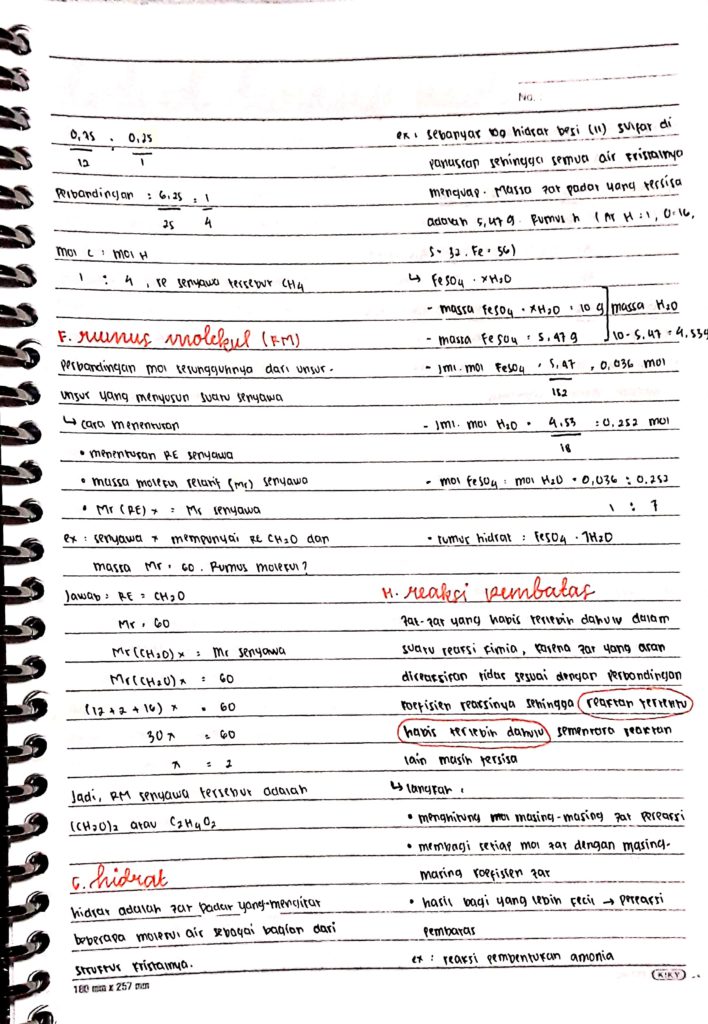 No.
0,75 : 0,25
12 1
Perbandingan : 6,25 : 1
25 4
mol C : mol H
1 : 4 , RE senyawa tersebut CH4
F. rumus molekul (RM)
perbandingan mol sesungguhnya dari unsur-
unsur yang menyusun suatu senyawa
↳ cara menentukan
• menentukan RE senyawa
• massa molekul relatif (Mr) senyawa
• Mr (RE) x = Mr senyawa
ex : senyawa x mempunyai RE CH2O dan
massa Mr = 60. Rumus molekul?
Jawab : RE = CH2O
Mr = 60
Mr(CH2O)x = Mr senyawa
Mr(CH2O)x = 60
(12+2+16) x = 60
30x = 60
x = 2
Jadi, RM senyawa tersebut adalah
(CH2O)2 atau C2H4O2
G. hidrat
hidrat adalah zat padat yang mengikat
beberapa molekul air sebagai bagian dari
struktur kristalnya.
180 mm x 257 mm
ex : sebanyak 10g hidrat besi (II) sulfat di
panaskan sehingga semua air kristalnya
menguap. Massa zat padat yang tersisa
adalah 5,47 g. Rumus h (Ar H = 1, O=16,
S = 32. Fe = 56)
↳ FeSO4 . xH2O
- massa FeSO4 . xH2O = 10 g massa H2O
- massa FeSO4 = 5,47 g 10 - 5,47 = 4,53g
- Jml. mol FeSO4 = 5,47 = 0,036 mol
152
- Jml. mol H2O = 4,53 = 0,252 mol
18
- mol FeSO4 : mol H2O = 0,036 : 0.252
1 : 7
- rumus hidrat : FeSO4 . 7H2O
H. reaksi pembatas
zat-zat yang habis terlebih dahulu dalam
suatu reaksi kimia, karena zat yang akan
direaksikan tidak sesuai dengan perbandingan
koefisien reaksinya sehingga reaktan tertentu
habis terlebih dahulu sementara reaktan
lain masih tersisa
↳ langkah :
• menghitung mol masing-masing zat pereaksi
• membagi setiap mol zat dengan masing-
masing koefisien zat
• hasil bagi yang lebih kecil → pereaksi
pembatas
ex : reaksi pembentukan amonia
KIKY